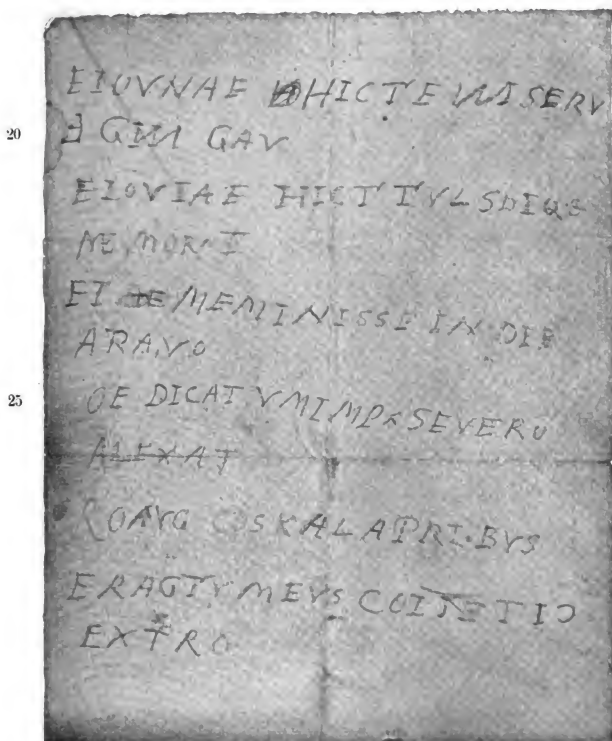 EIOVNAE HICTE MISERV
20
GIM GAV
EIOVIAE HICTTVLSDIQS
NE MORAI
EI MEMINISSE IN DIE
ARA.VO
25
OE DICATVMIMPASEVERO
ALEXAT
OAVG COSKALAPRI.BVS
ERAGTVMEVS
EXTRO